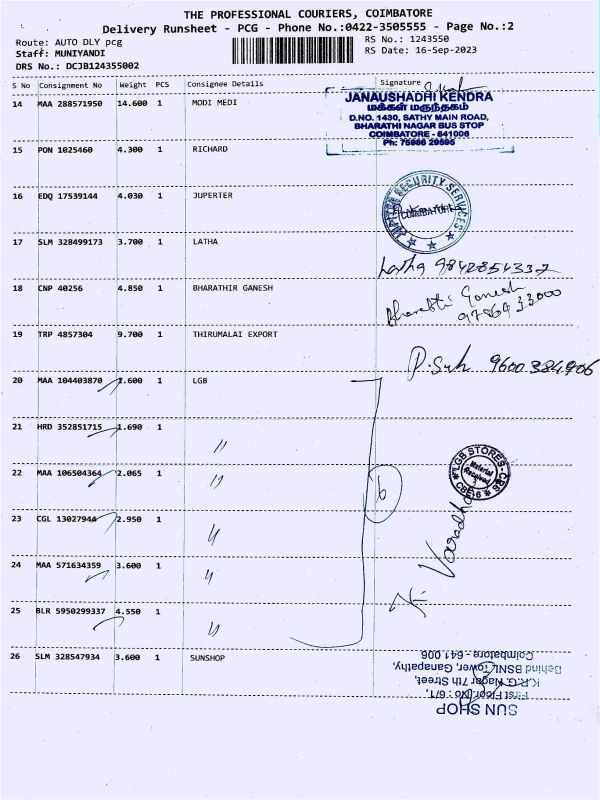 THE PROFESSIONAL COURIERS, COIMBATORE
Delivery Runsheet - PCG - Phone No.:0422-3505555 - Page No.:2
Route: AUTO DLY pcg
Staff: MUNIYANDI
DRS No.: DCJB124355002
RS No.: 1243550
RS Date: 16-Sep-2023
S No Consignment No Weight PCS Consignee Details Signature
14 MAA 288571950 14.600 1 MODI MEDI
JANAUSHADHI KENDRA
மக்கள் மருந்தகம்
D.NO. 1430, SATHY MAIN ROAD,
BHARATHI NAGAR BUS STOP
COIMBATORE - 641006
Ph: 75986 29595
15 PON 1025460 4.300 1 RICHARD
16 EDQ 17539144 4.030 1 JUPERTER
JUPITER SECURITY SERVICES
COIMBATORE
17 SLM 328499173 3.700 1 LATHA
Latha 9842854337
18 CNP 40256 4.850 1 BHARATHIR GANESH
Bharathi Ganesh
9786433000
19 TRP 4857304 9.700 1 THIRUMALAI EXPORT
9600384906
20 MAA 104403870 1.600 1 LGB
21 HRD 352851715 1.690 1 "
22 MAA 106504364 2.065 1 "
23 CGL 13027944 2.950 1 "
24 MAA 571634359 3.600 1 "
25 BLR 5950299337 4.550 1 "
6
LGB STORES-CBS
Material
Received
CBE-6
26 SLM 328547934 3.600 1 SUNSHOP
SUN SHOP
First Floor, No : 6/1,
K.R.G. Nagar 7th Street,
Behind BSNL Tower, Ganapathy,
Coimbatore - 641 006